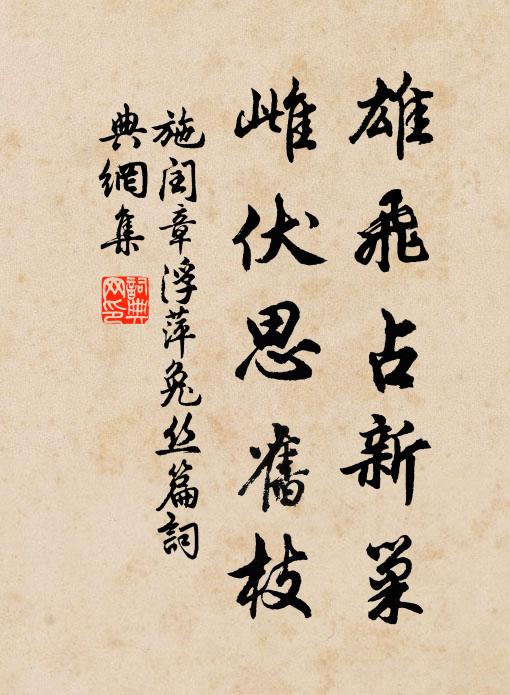 雄飛占新巢
雌伏思舊枝
施閏章浮萍兔丝篇詞
典網集
詞典
网印